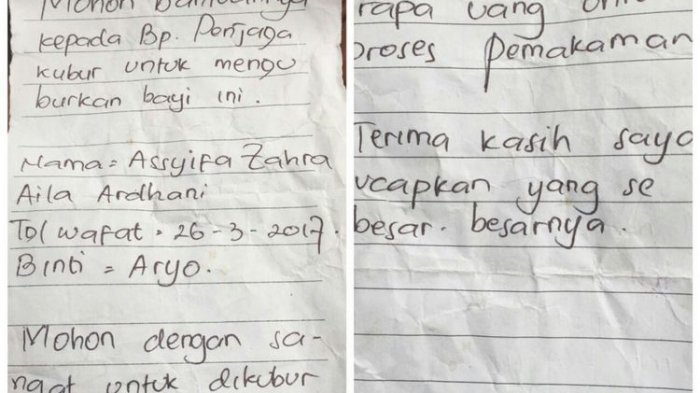 Mohon
kepada Bp. Penjaga
kubur untuk mengu
burkan bayi ini.
Nama = Assyifa Zahra
Aila Ardhani
Tgl wafat . 26-3-2017.
Binti = Aryo.
Mohon dengan sa-
ngat untuk dikubur
rapa uang
proses pemakaman
Terima kasih saya
ucapkan yang se
besar. besarnya.